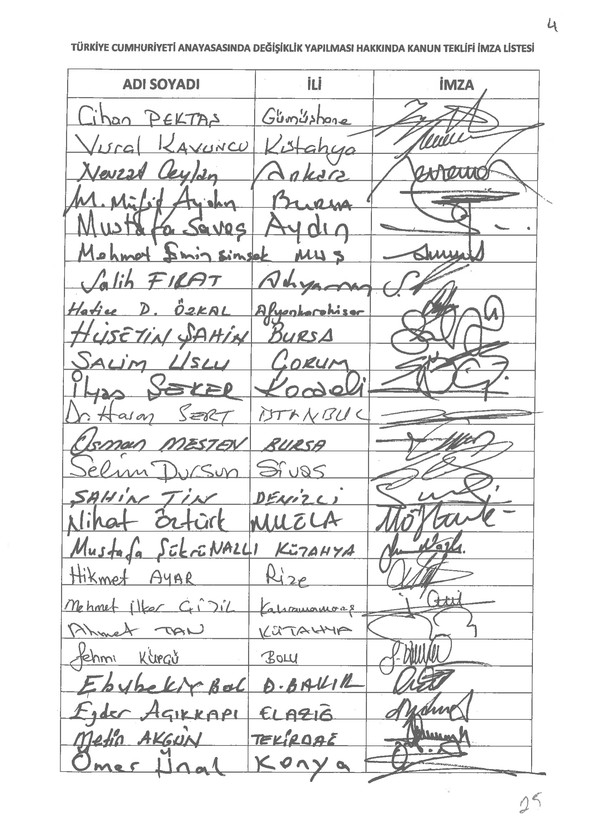 4
TÜRKİYE CUMHURİYETİ ANAYASASINDA DEĞİŞİKLİK YAPILMASI HAKKINDA KANUN TEKLİFİ İMZA LİSTESİ
ADI SOYADI İLİ İMZA
Cihan PEKTAŞ Gümüşhane
Vural KAVUNCU Kütahya
Nevzat Ceylan Ankara
M. Müfit Aydın BURSA
Mustafa Savaş Aydın
Mehmet Emin Şimşek MUŞ
Salih FIRAT Adıyaman
Hatice D. ÖZKAL Afyonkarahisar
HÜSEYİN ŞAHİN BURSA
SALİM USLU ÇORUM
İlyas ŞEKER Kocaeli
Dr. Hasan SERT İSTANBUL
Osman MESTEN BURSA
Selim Dursun Sivas
ŞAHİN TİN DENİZLİ
Nihat Öztürk MUĞLA
Mustafa Şükrü NAZLI KÜTAHYA
Hikmet AYAR Rize
Mehmet İlker Kahramanmaraş
Ahmet TAN KÜTAHYA
Fehmi KÜPÇÜ BOLU
Ebubekir Bal D.BAKIR
Ejder AÇIKKAPI ELAZIĞ
Metin AKGÜN TEKİRDAĞ
Ömer Ünal Konya
25